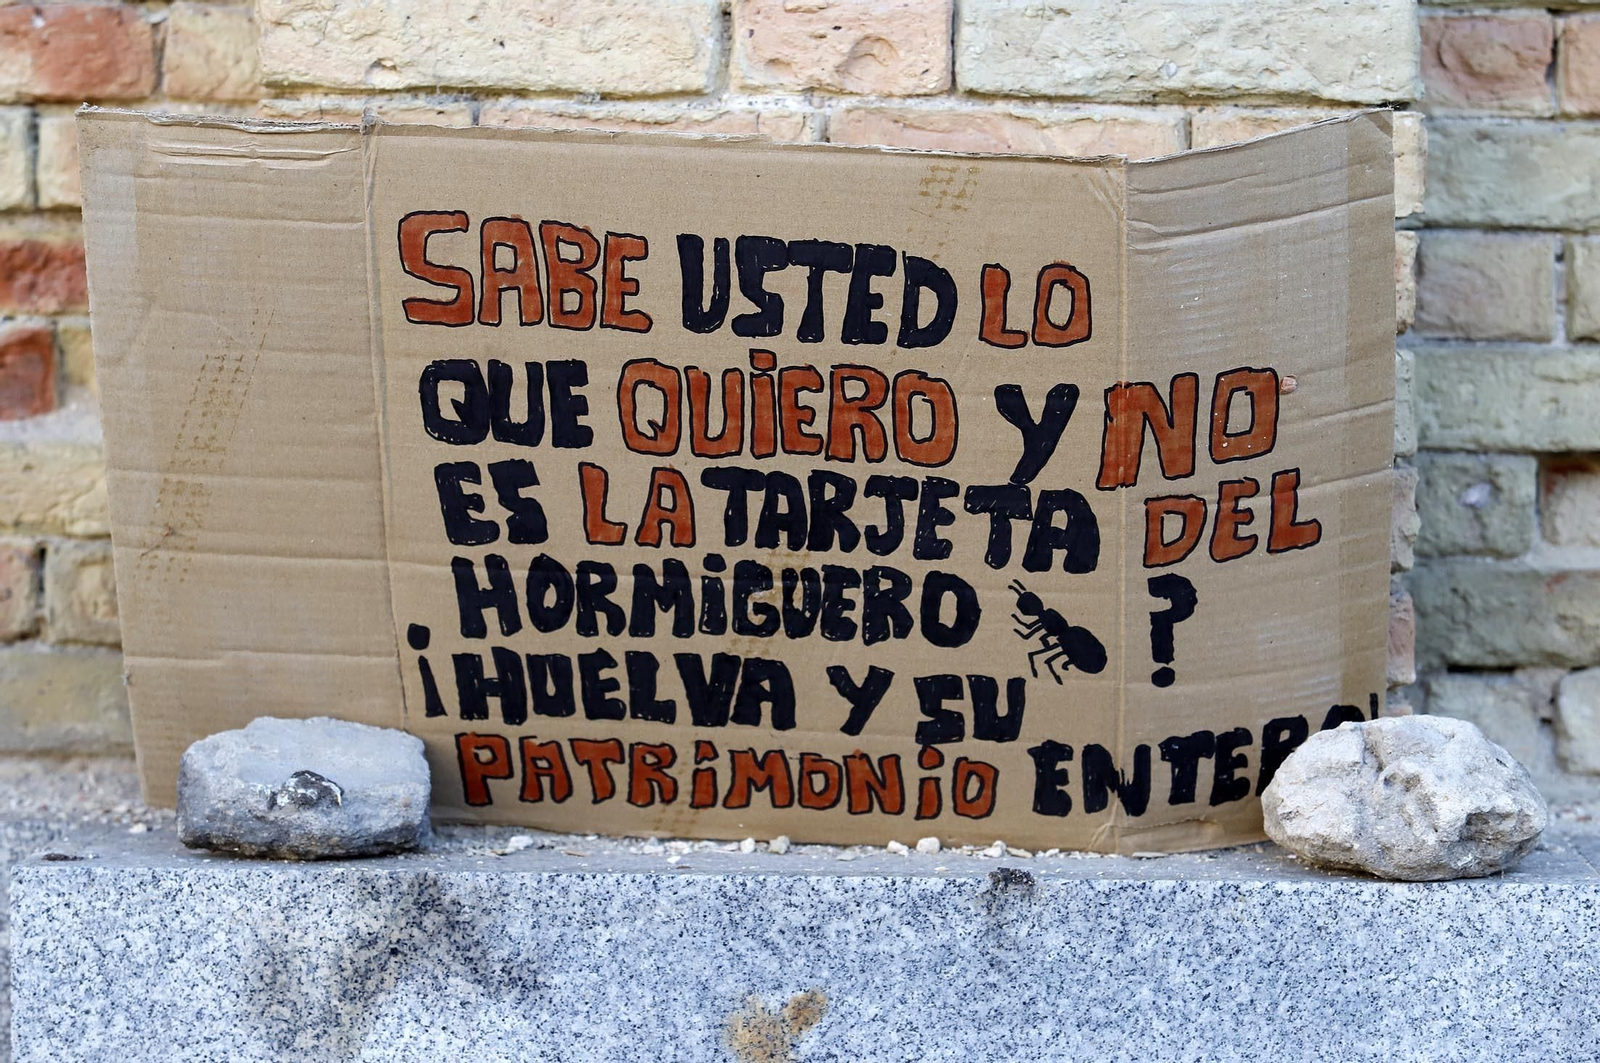 SABE USTED LO
QUE QUIERO Y NO
ES LA TARJETA DEL
HORMiGUERO ?
¡HUELVA Y SU
PATRiMONiO ENTERO!